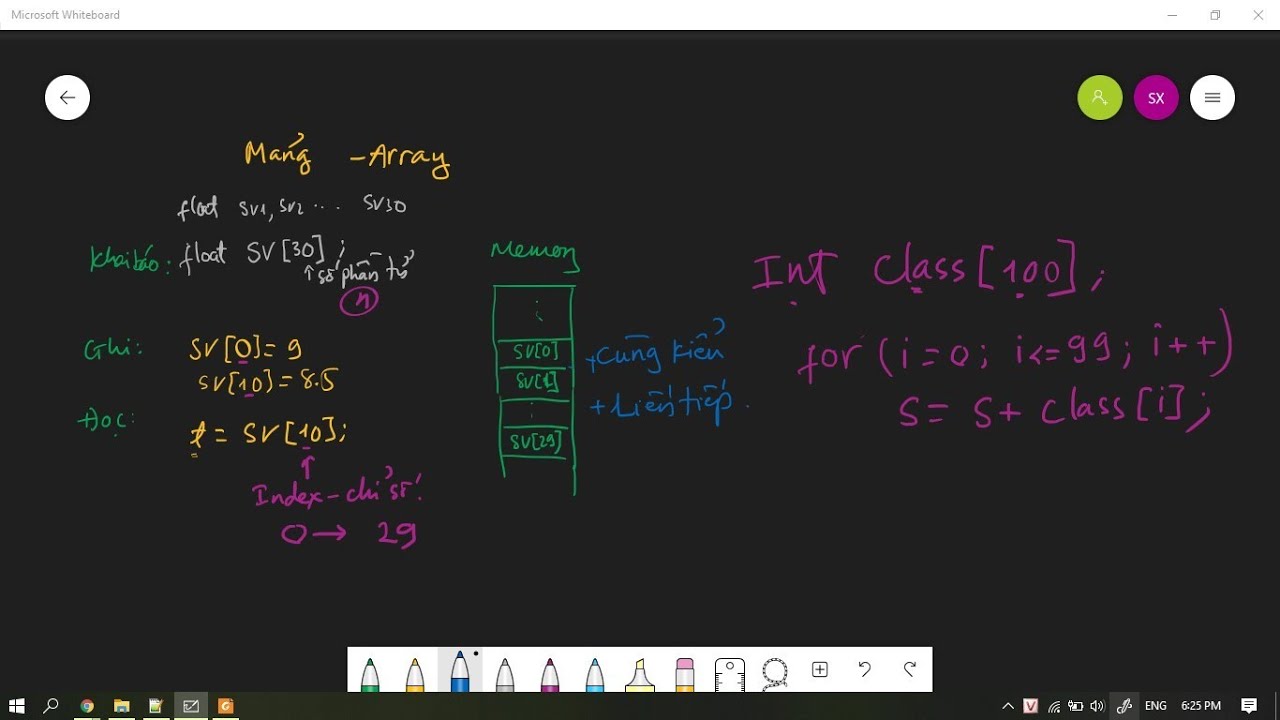 Microsoft Whiteboard
SX
Mảng - Array
float SV1, SV2 ... SV30
Khai báo: float SV[30];
↑ số phần tử
n
Ghi: SV[0] = 9
SV[10] = 8.5
Đọc: t = SV[10];
↑
Index - chỉ số
0 → 29
Memory
SV[0]
SV[1]
SV[29]
+ Cùng kiểu
+ Liên tiếp.
Int Class[100];
for (i = 0; i <= 99; i++)
S = S + Class[i];
ENG 6:25 PM